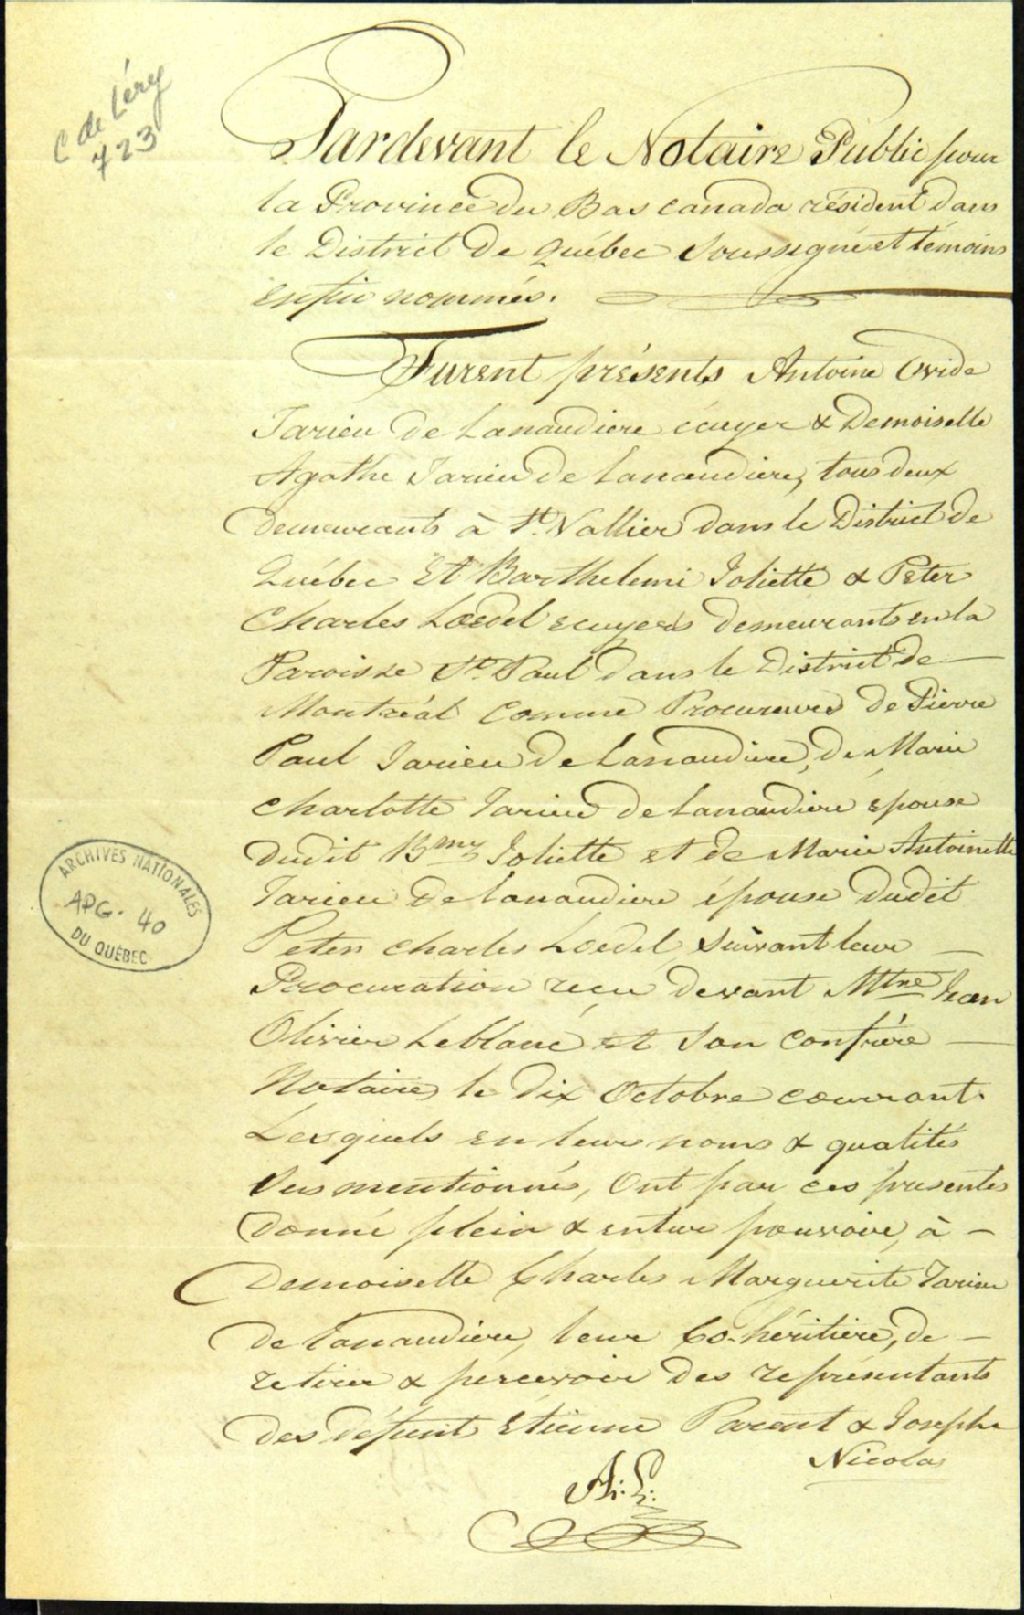 C de Léry
723
Pardevant le Notaire Public pour
la Province du Bas Canada résident dans
le District de Québec Soussigné et témoins
enfin nommés.
Furent présents Antoine Ovide
Tarieu de Lanaudiere écuyer & Demoiselle
Agathe Tarieu de Lanaudiere, tous deux
demeurants à St. Vallier dans le District de
Québec Et Barthelemi Joliette & Peter
Charles Loedel ecuyers demeurants en la
Paroisse St. Paul dans le District de
Montréal comme Procureurs de Pierre
Paul Tarieu de Lanaudiere, de Marie
Charlotte Tarieu de Lanaudiere épouse
dudit Bmy Joliette et de Marie Antoinette
Tarieu de Lanaudiere épouse dudit
Peter Charles Loedel, suivant leur
Procuration reçu devant Mtre Jean
Olivier Leblanc et son confrère
Notaires le dix Octobre courant.
Lesquels en leurs noms & qualités
sus mentionnés, Ont par ces presentes
donné plein & entier pouvoir, à
Demoiselle Charles Marguerite Tarieu
de Lanaudiere, leur Co-héritière, de
retirer & percevoir des représentants
des défunt Etienne Parent & Joseph
Nicolas
A: L:
ARCHIVES NATIONALES
APG. 40
DU QUÉBEC